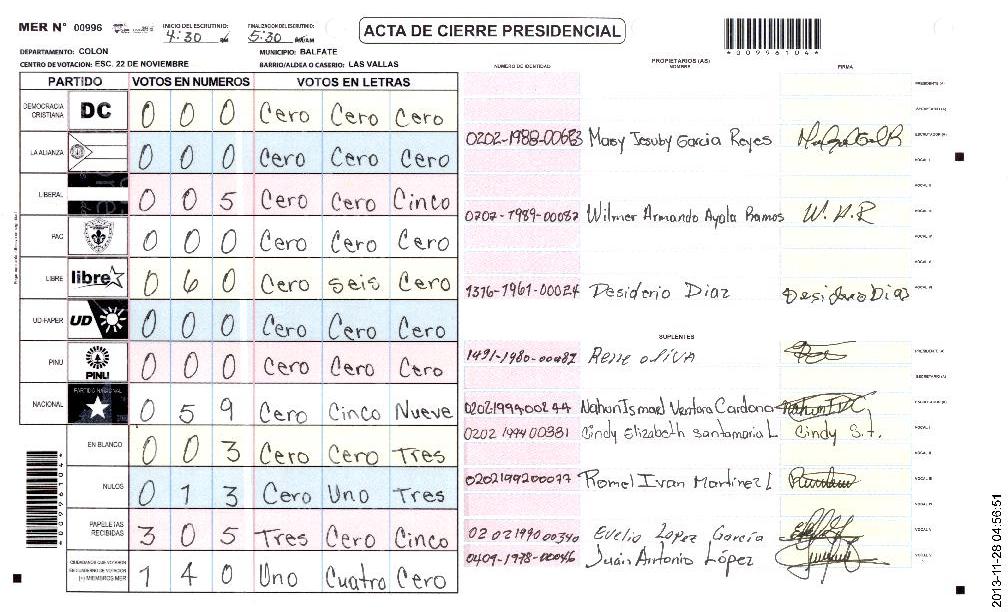 MER N° 00996 INICIO DEL ESCRUTINIO: 4:30 FINALIZACION DEL ESCRUTINIO: 5:30
ACTA DE CIERRE PRESIDENCIAL
*00996104*
DEPARTAMENTO: COLON MUNICIPIO: BALFATE
CENTRO DE VOTACION: ESC. 22 DE NOVIEMBRE BARRIO/ALDEA O CASERIO: LAS VALLAS
PARTIDO VOTOS EN NUMEROS VOTOS EN LETRAS
DEMOCRACIA CRISTIANA DC 0 0 0 Cero Cero Cero
LA ALIANZA 0 0 0 Cero Cero Cero
LIBERAL 0 0 5 Cero Cero Cinco
PAC 0 0 0 Cero Cero Cero
LIBRE libre 0 6 0 Cero seis Cero
UD-FAPER UD 0 0 0 Cero Cero Cero
PINU PINU 0 0 0 Cero Cero Cero
NACIONAL PARTIDO NACIONAL 0 5 9 Cero Cinco Nueve
EN BLANCO 0 0 3 Cero Cero Tres
NULOS 0 1 3 Cero Uno Tres
PAPELETAS RECIBIDAS 3 0 5 Tres Cero Cinco
CIUDADANOS QUE VOTARON SEG CUADERNO DE VOTACION (+) MIEMBROS MER 1 4 0 Uno Cuatro Cero
*00996104*
PROPIETARIOS (AS)
NUMERO DE IDENTIDAD NOMBRE FIRMA
PRESIDENTE (A)
SECRETARIO (A)
0202-1988-00683 Marsy Jesuby Garcia Reyes ESCRUTADOR (A)
VOCAL I
VOCAL II
0707-1989-00087 Wilmer Armando Ayala Ramos W. A. R VOCAL III
VOCAL IV
VOCAL V
1316-1961-00024 Desiderio Diaz Desiderio Diaz VOCAL VI
SUPLENTES
1491-1980-00482 Rene oliva PRESIDENTE (A)
SECRETARIO (A)
0202199400244 Nahun Ismael Ventura Cardona ESCRUTADOR (A)
0202 1994 00381 Cindy Elizabeth santamaria L Cindy S.t. VOCAL I
VOCAL II
0202199200077 Romel Ivan Martinez L VOCAL III
VOCAL IV
02 02 1990 00340 Evelio Lopez García VOCAL V
0409-1978-00046 Juan Antonio López VOCAL VI
2013-11-28 04:56:51